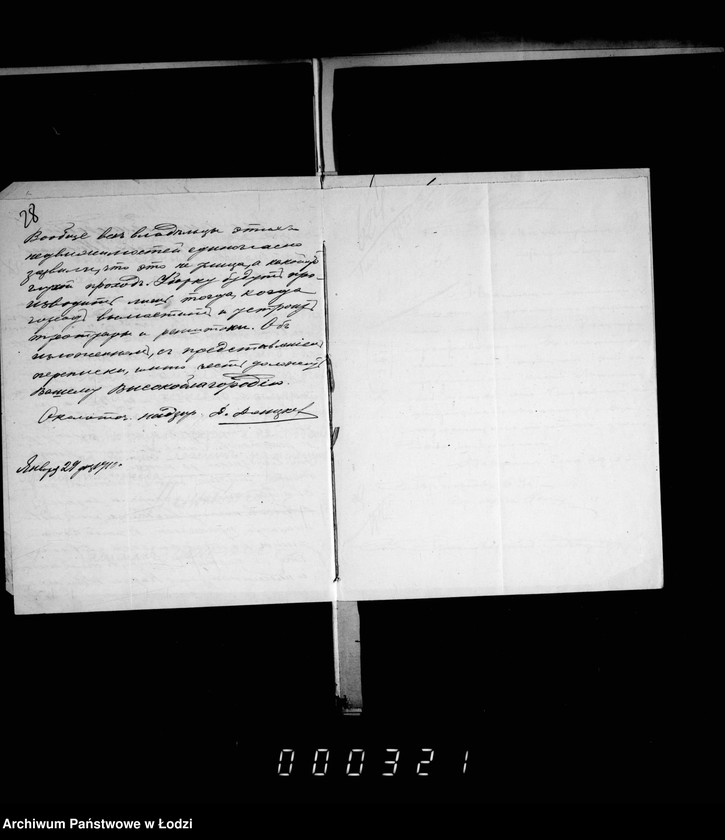 28
Вообще всѣ владѣльцы этихъ
недвижимостей единогласно
заявили, что это не улица, а какой то
глухой проходъ. Уборку будутъ про-
изводить лишь тогда, когда
городъ вымоститъ и устроитъ
тротуары и рыштоки. Объ
изложенномъ, съ представленіемъ
переписки, имѣю честь доложить
Вашему Высокоблагородію.
Околоточ. надзир.
Января 29 дня
000321
Archiwum Państwowe w Łodzi